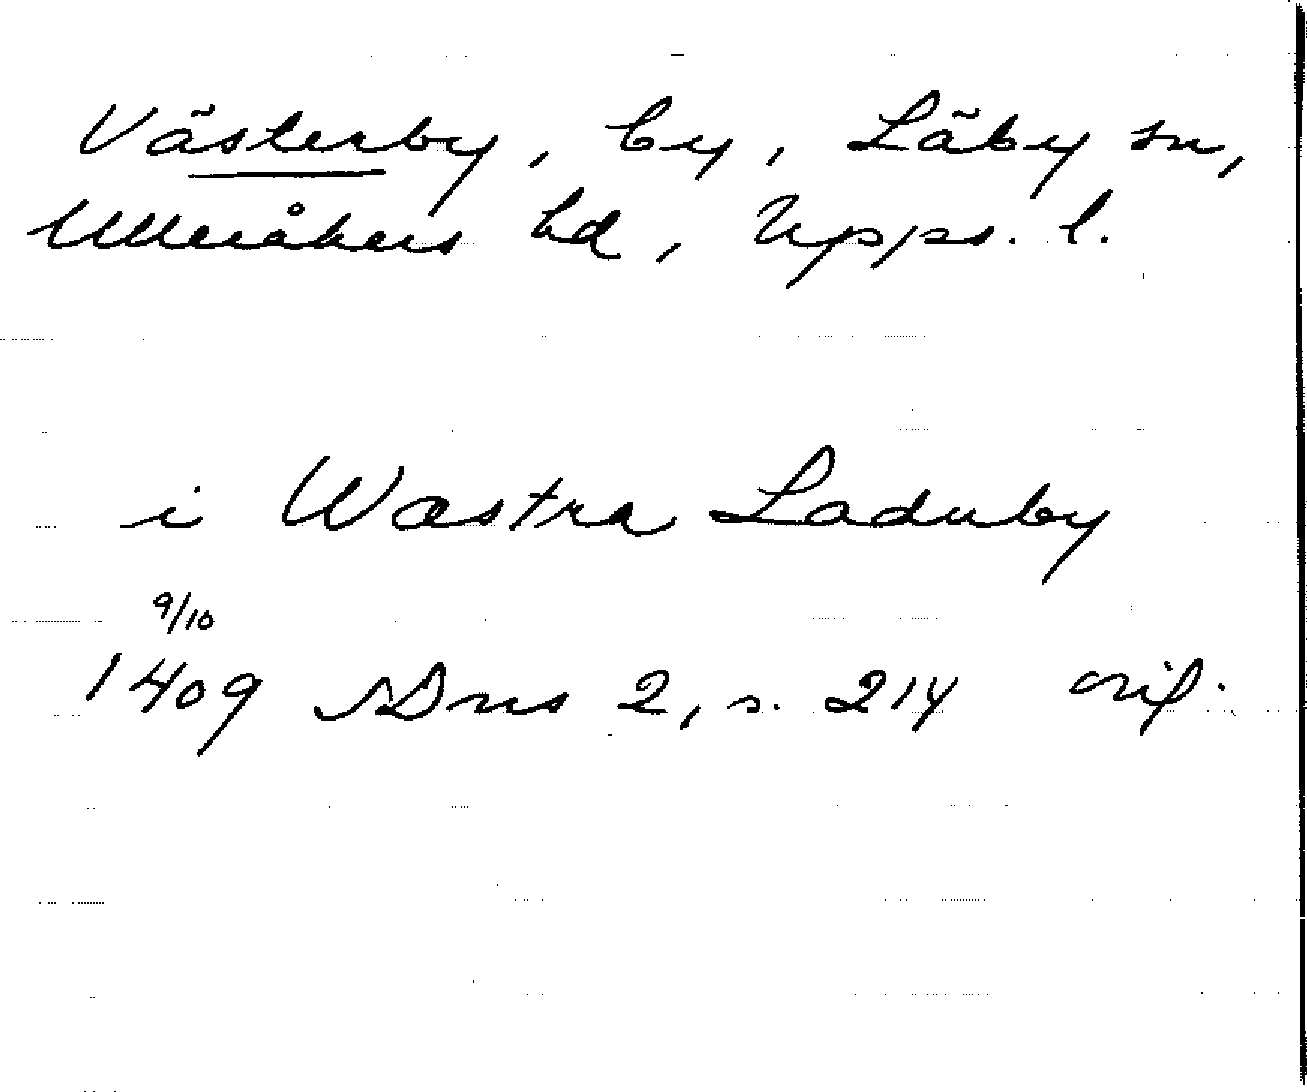 Västerby, by, Läby sn,
Ulleråkers hd, Upps. l.
i Wæstra Laduby
9/10
1409 SDns 2, s. 214 orig.